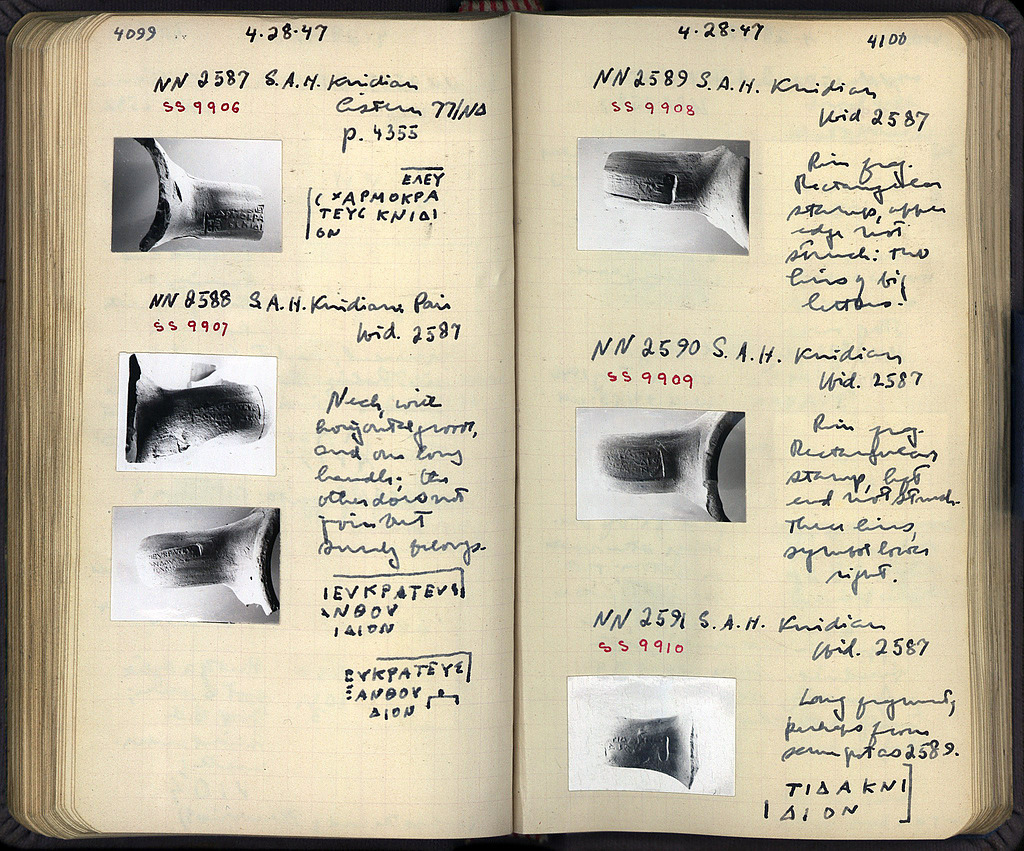 4099
4-28-47
NN 2587 S.A.H. Knidian
SS 9906
Cistern 77/ΝΔ
p. 4355
ΕΛΕΥ
ΧΑΡΜΟΚΡΑ
ΤΕΥC ΚΝΙΔΙ
ΟΝ
NN 2588 S.A.H. Knidian. Pair
SS 9907
Ibid. 2587
Neck, with
horizontal groove,
and one long
handle; the
other does not
join but
surely belongs.
ΙΕΥΚΡΑΤΕΥΣ
ΑΝΘΟΥ
ΙΔΙΟΝ
ΕΥΚΡΑΤΕΥΣ
ΞΑΝΘΟΥ
ΔΙΟΝ
4-28-47
4100
NN 2589 S.A.H. Knidian
SS 9908
Ibid 2587
Rim frag.
Rectangular
stamp, upper
edge not
struck: two
lines of big
letters.
NN 2590 S.A.H. Knidian
SS 9909
Ibid. 2587
Rim frag.
Rectangular
stamp, left
end not struck.
Three lines,
symbol lower
right.
NN 2591 S.A.H. Knidian
SS 9910
Ibid. 2587
Long fragment,
perhaps from
same pot as 2589.
ΤΙΔΑ ΚΝΙ
ΙΔΙΟΝ